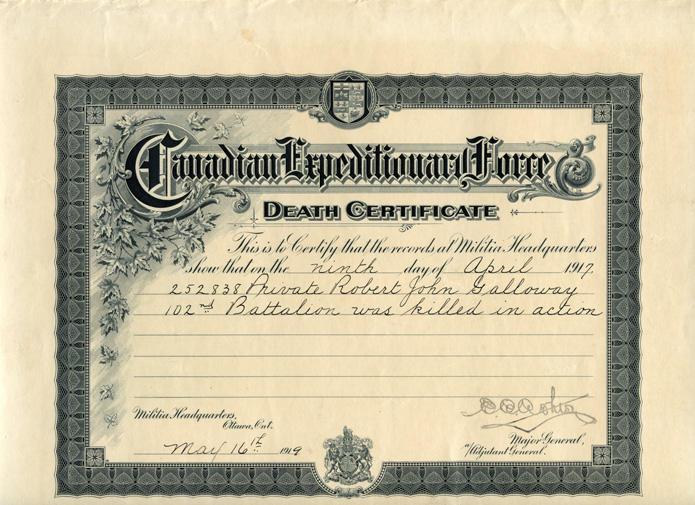 Canadian Expeditionary Force
DEATH CERTIFICATE
This is to Certify that the records at Militia Headquarters
show that on the ninth day of April 1917.
252838 Private Robert John Galloway
102nd Battalion was killed in action
Militia Headquarters,
Ottawa, Ont.
May 16th 1919
Major General,
Adjutant General.